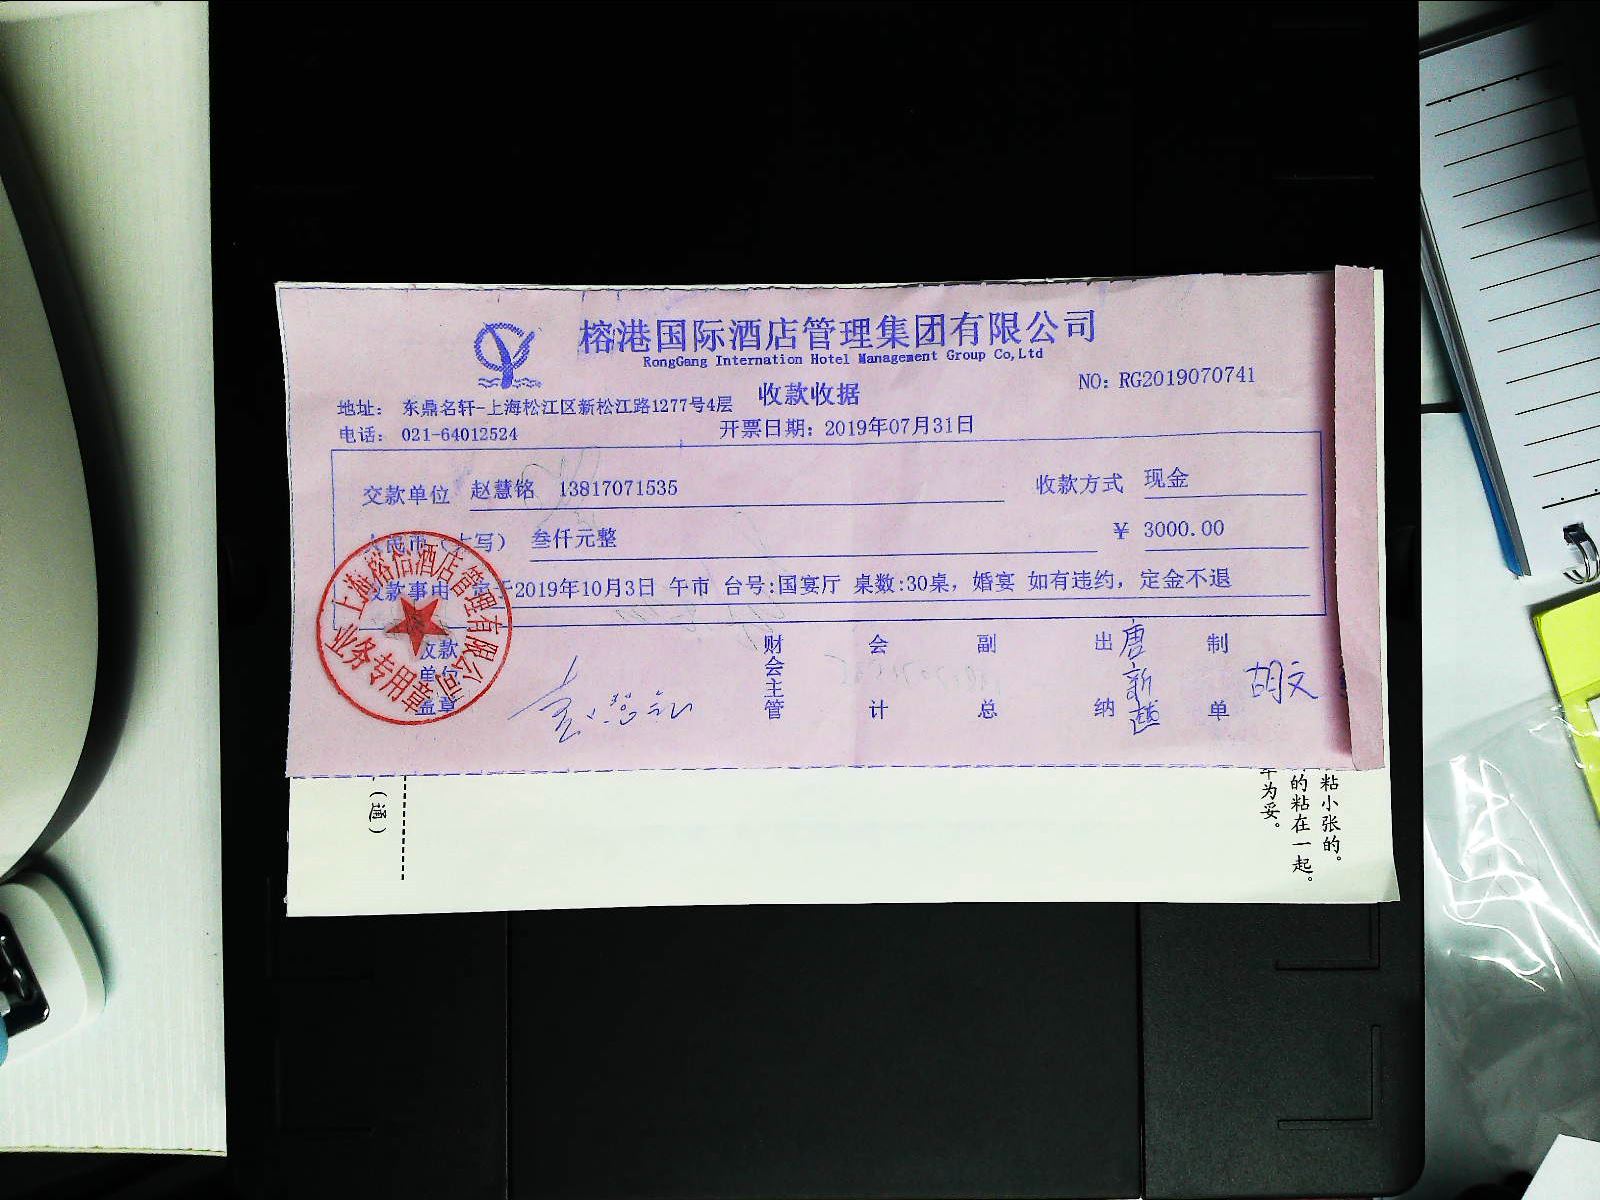 榕港国际酒店管理集团有限公司
RongGang Internation Hotel Management Group Co,Ltd
收款收据
NO: RG2019070741
地址: 东鼎名轩-上海松江区新松江路1277号4层
电话: 021-64012524
开票日期: 2019年07月31日
交款单位 赵慧铭 13817071535
收款方式 现金
人民币(大写) 叁仟元整
¥ 3000.00
收款事由 定于2019年10月3日 午市 台号:国宴厅 桌数:30桌, 婚宴 如有违约, 定金不退
收款单位盖章
财会主管
会计
副总
出纳
唐新
制单
胡文
业务专用章
(通)
粘小张的。
的粘在一起。
为妥。